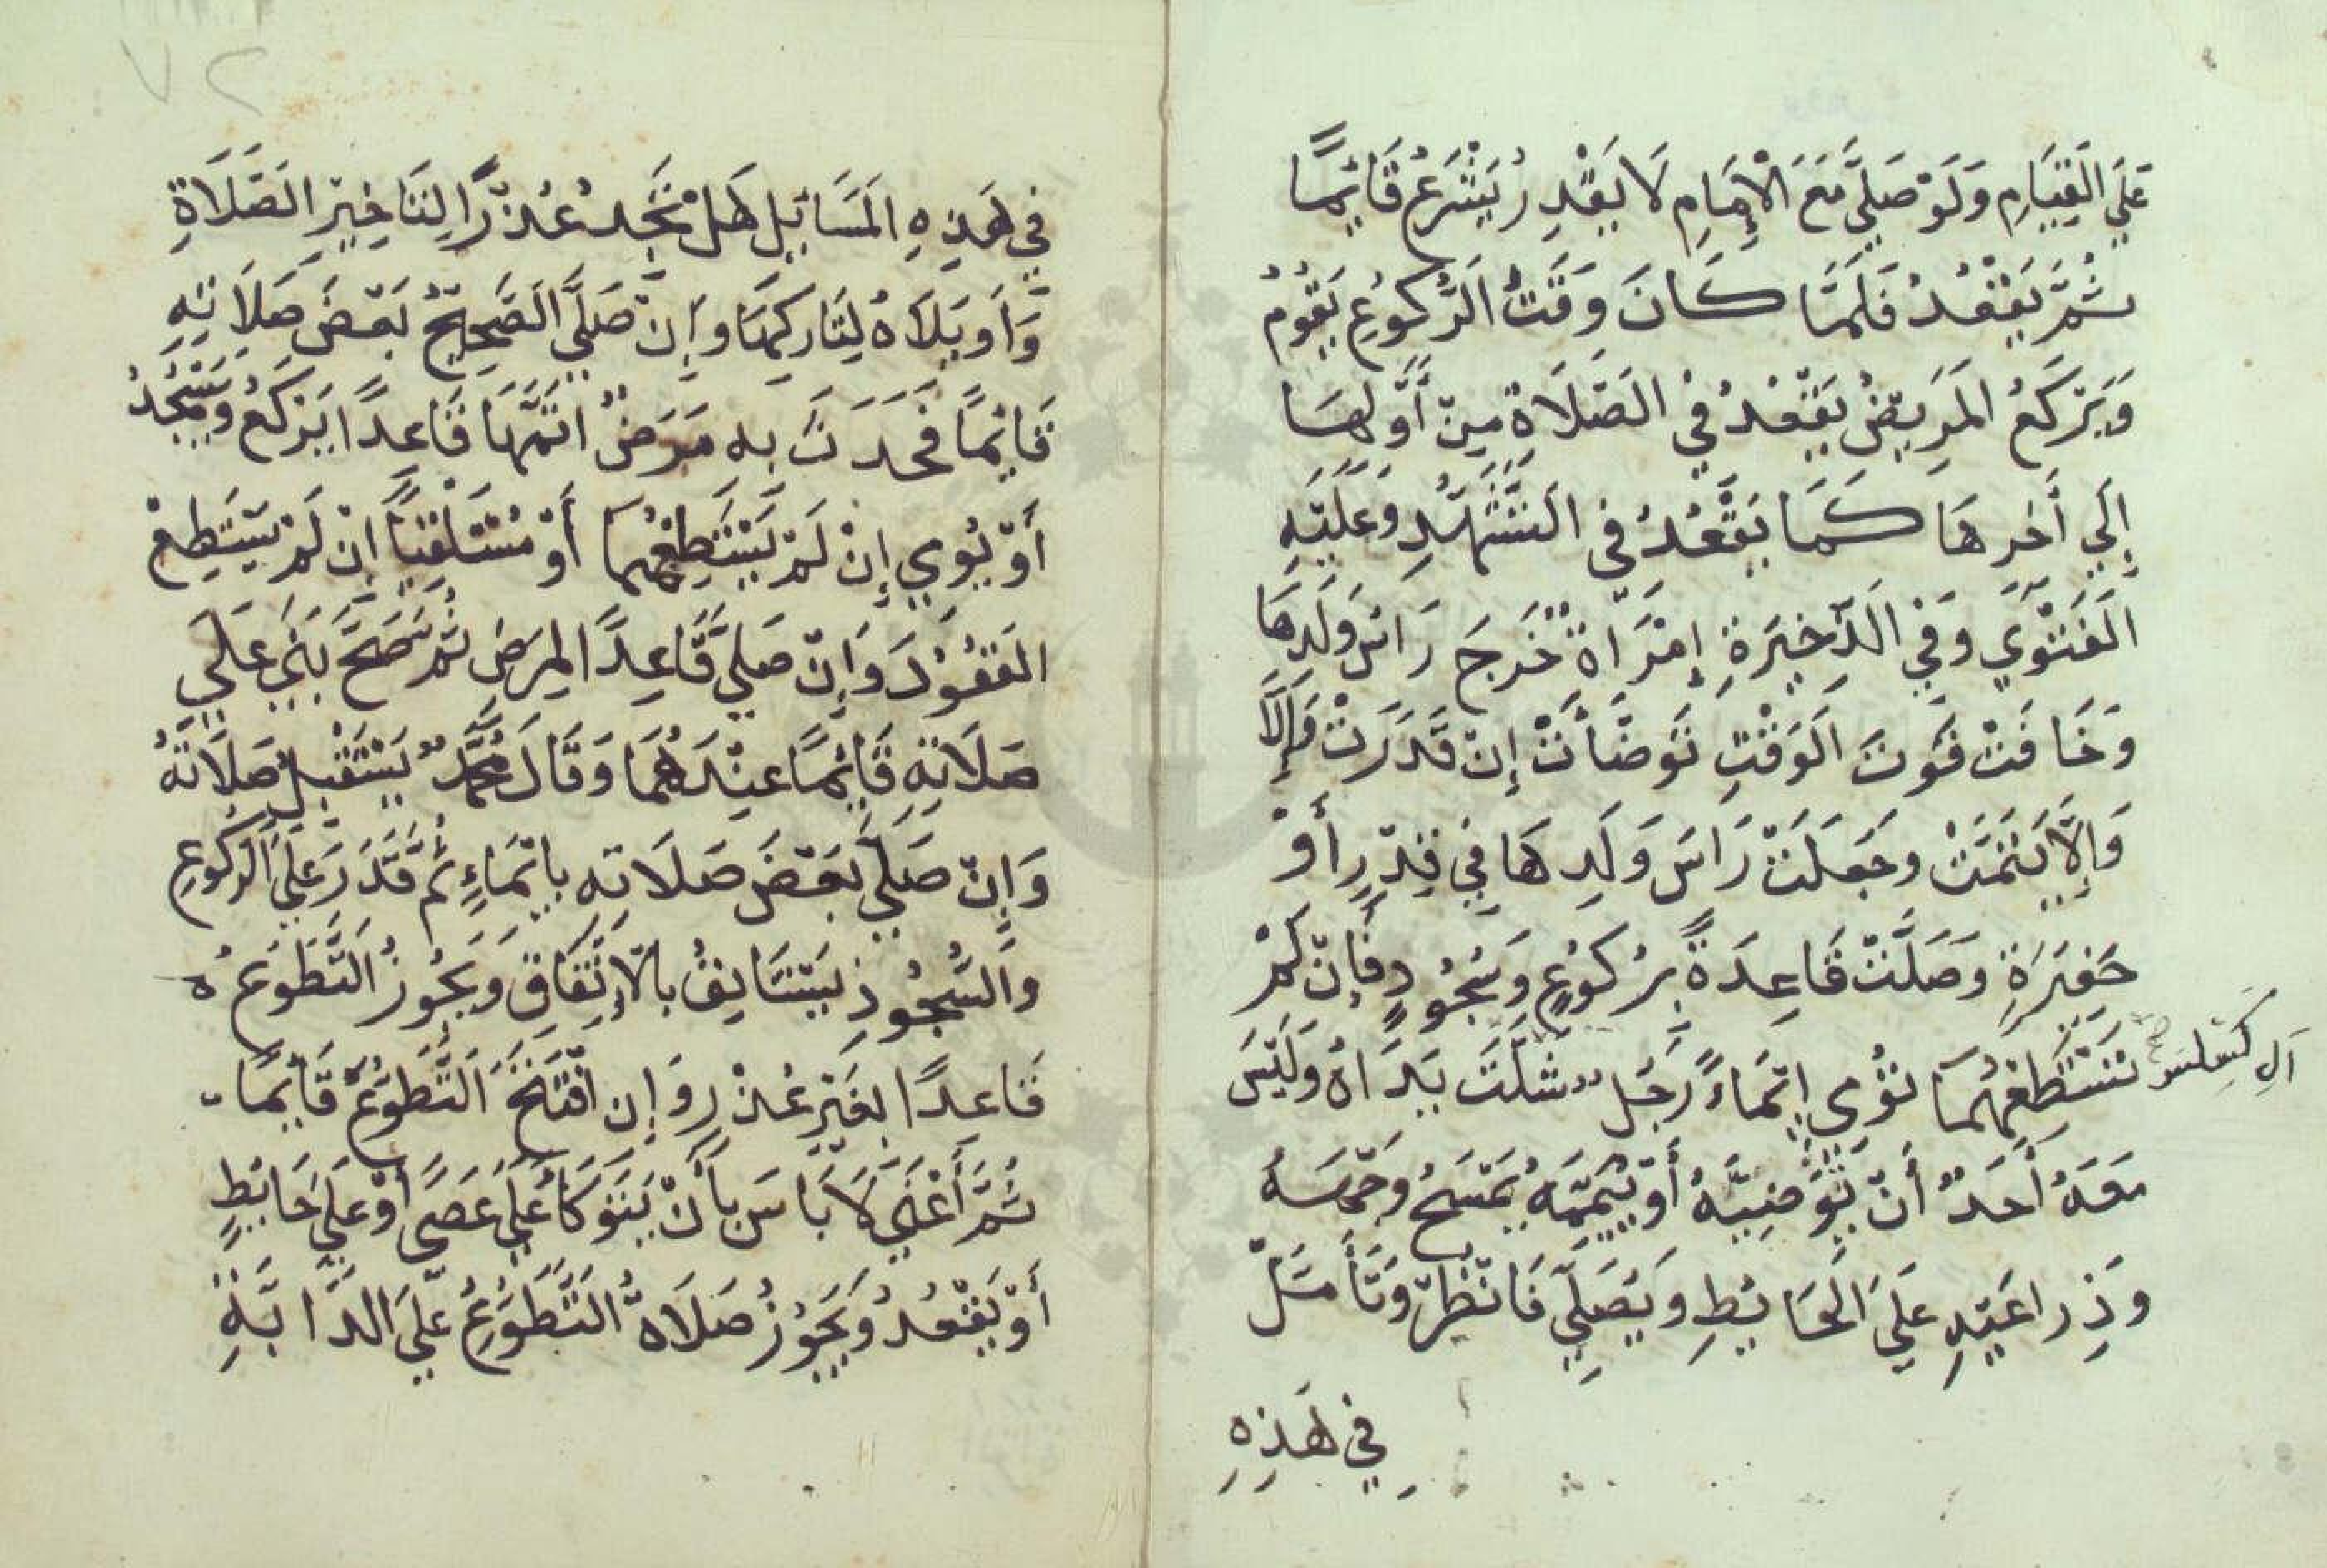 عَلَي الْقِيَامِ وَلَوْ صَلَّي مَعَ الْإِمَامِ لَا يَقْدِرُ يَشْرَعُ قَائِمًا
ثُمَّ يَقْعُدُ فَلَمَّا كَانَ وَقْتُ الرُّكُوعِ يَقُومُ
وَيَرْكَعُ الْمَرِيضُ يَقْعُدُ فِي الصَّلَاةِ مِنْ أَوَّلِهَا
إِلَي أَخِرِهَا كَمَا يَقْعُدُ فِي التَّشَهُّدِ وَعَلَيْهِ
الْفَتْوَي وَفِي الذَّخِيرَةِ إِمْرَاةٌ خَرَجَ رَاسُ وَلَدِهَا
وَخَافَتْ فَوْتَ الْوَقْتِ تَوَضَّأَتْ إِنْ قَدَرَتْ وَإِلَّا
وَإِلَّا تَيَمَّمَتْ وَجَعَلَتْ رَاسَ وَلَدِهَا فِي قِدْرٍ أَوْ
حَفِيرَةٍ وَصَلَّتْ قَاعِدَةً بِرُكُوعٍ وَسُجُودٍ فَإِنْ لَمْ
تَسْتَطِعْهُمَا تُؤْمِي إِيْمَاءً رَجُلٌ شَلَّتْ يَدَاهُ وَلَيْسَ
مَعَهُ أَحَدٌ أَنْ يُوَضِّيَهُ أَوْ يُيَمِّمَهُ يَمْسَحُ وَجْهَهُ
وَذِرَاعَيْهِ عَلَي الْحَايِطِ وَيُصَلِّي فَانْظُرْ وَتَأَمَّلْ
فِي هَذِهِ
٧٢
فِي هَذِهِ الْمَسَائِلِ هَلْ تَجِدُ عُذْرًا لِتَاخِيرِ الصَّلَاةِ
وَاوَيْلَاهُ لِتَارِكِهَا وَإِنْ صَلَّي الصَّحِيحُ بَعْضَ صَلَاتِهِ
قَايِمًا فَحَدَثَ بِهِ مَرَضٌ اتَمَّهَا قَاعِدًا يَرْكَعُ وَيَسْجُدُ
أَوْ يُومِي إِنْ لَمْ يَسْتَطِعْهُمَا أَوْ مُسْتَلْقِيًا إِنْ لَمْ يَسْتَطِعْ
الْقُعُودَ وَإِنْ صَلَّي قَاعِدًا لِمَرَضٍ ثُمَّ صَحَّ بَنَي عَلَي
صَلَاتِهِ قَائِمًا عِنْدَهُمَا وَقَالَ مُحَمَّدٌ يَسْتَقْبِلُ صَلَاتَهُ
وَإِنْ صَلَّي بَعْضَ صَلَاتِهِ بِإِيْمَاءٍ ثُمَّ قَدَرَ عَلَي الرُّكُوعِ
وَالسُّجُودِ يَسْتَانِفُ بِالْإِتِّفَاقِ وَيَجُوزُ التَّطَوُّعُ ه
قَاعِدًا بِغَيْرِ عُذْرٍ وَإِنِ افْتَتَحَ التَّطَوُّعَ قَايِمًا
ثُمَّ أَعْيَي لَا بَاسَ بِأَنْ يَتَوَكَّأَ عَلَي عَصًي أَوْ عَلَي حَايِطٍ
أَوْ يَقْعُدُ وَيَجُوزُ صَلَاةُ التَّطَوُّعِ عَلَي الدَّابَّةِ